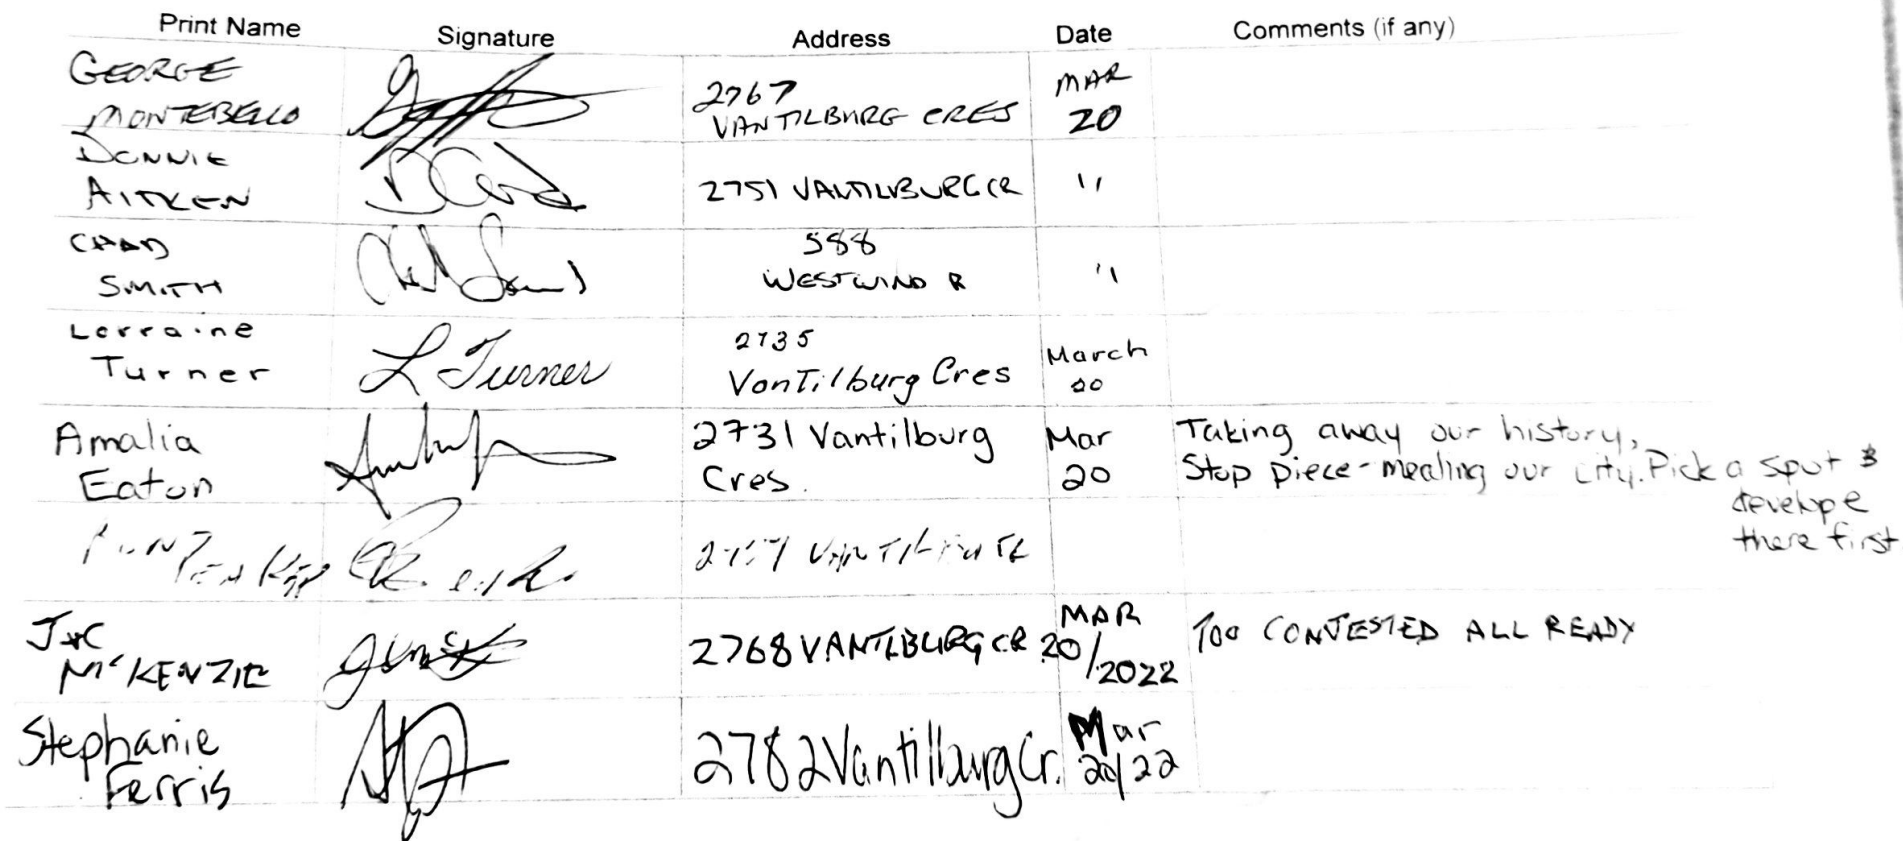 Print Name Signature Address Date Comments (if any)
GEORGE
MONTEBELLO
2767
VANTILBURG CRES
MAR
20
DONNIE
AITKEN
2751 VANTILBURG CR
"
CHAD
SMITH
588
WESTWIND R
"
Lorraine
Turner
L Turner
2735
VanTilburg Cres
March
20
Amalia
Eaton
2731 Vantilburg
Cres.
Mar
20
Taking away our history,
Stop piece-mealing our city. Pick a spot &
develope
there first
J+C
McKENZIE
2768 VANTILBURG CR
MAR
20/2022
TOO CONTESTED ALL READY
Stephanie
Ferris
2782 Vantilburg Cr.
Mar
20/22